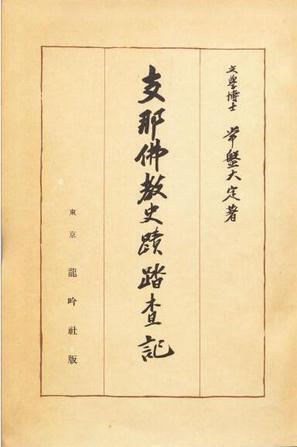 文學博士 常盤大定著
支那佛教史蹟踏査記
東京 龍吟社版